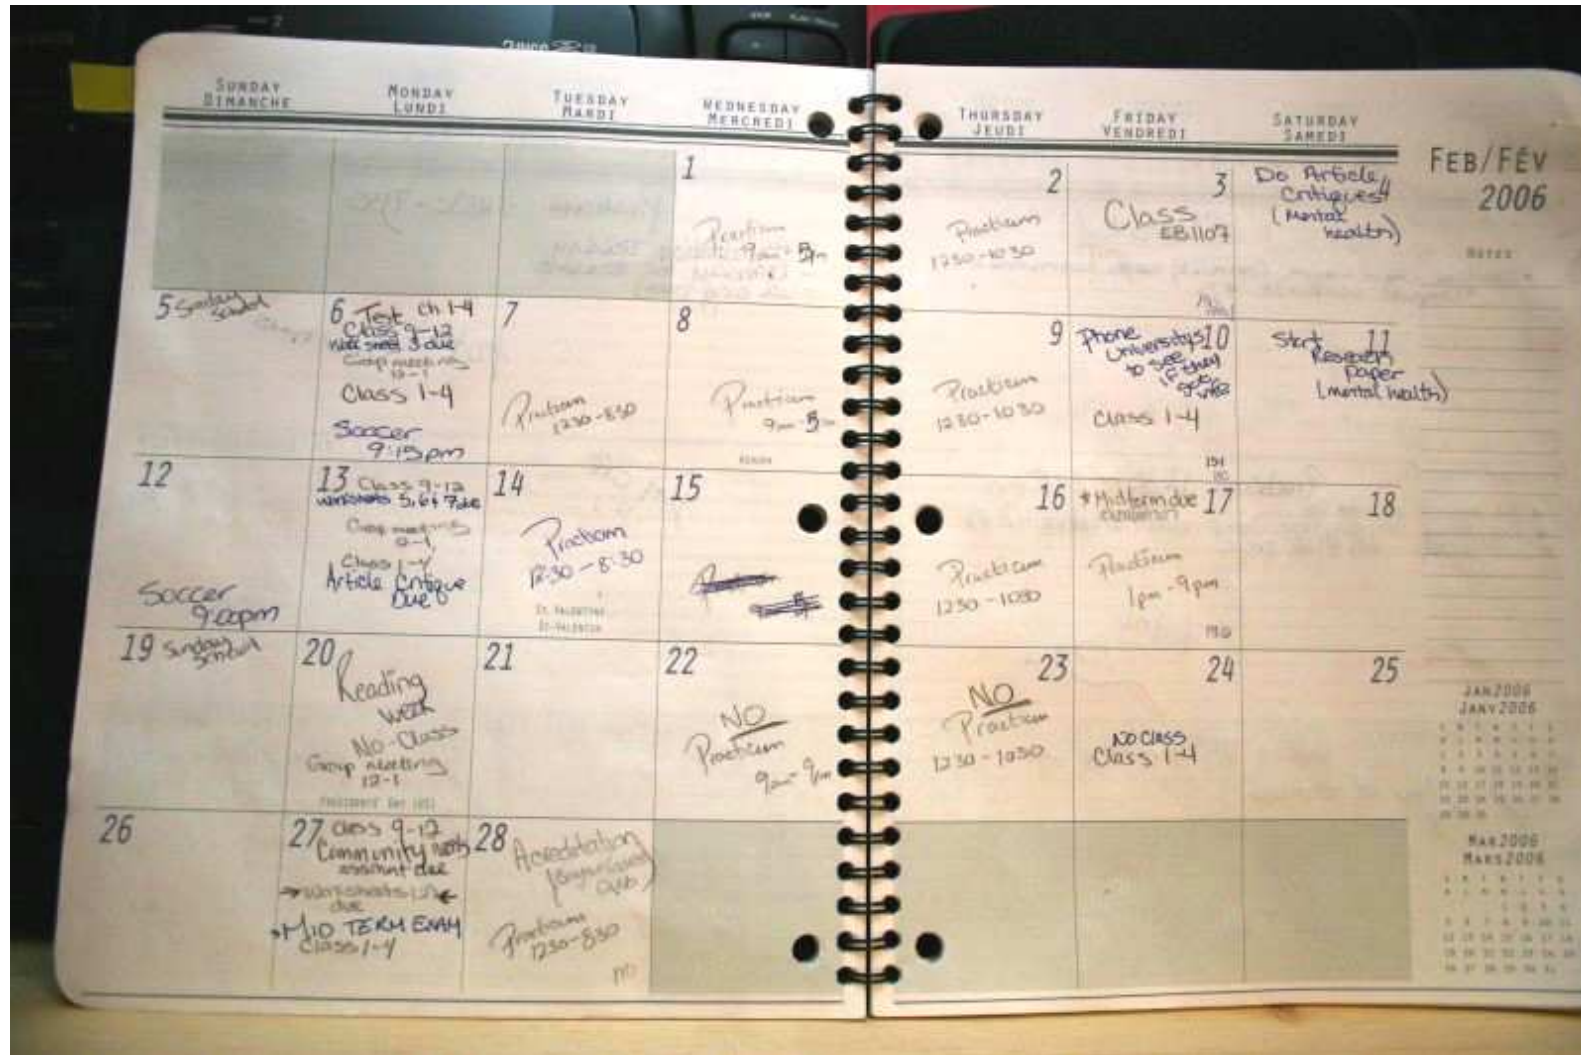 SUNDAY
DIMANCHE
MONDAY
LUNDI
TUESDAY
MARDI
WEDNESDAY
MERCREDI
THURSDAY
JEUDI
FRIDAY
VENDREDI
SATURDAY
SAMEDI
FEB/FÉV
2006
NOTES
1
Practicum
9am - 5pm
2
Practicum
1230-1030
3
Class
EB1107
Do Article 4
Critiques
(Mental
health)
5 Sunday
School
6 Test Ch 1-4
Class 9-12
Work sheet 3 due
Group meeting
12-1
Class 1-4
Soccer
9:15pm
7
Practicum
1230-830
8
Practicum
9am-5
9
Practicum
1230-1030
Phone 10
Universitys
to see
if they
got
Class 1-4
Start 11
Research
paper
(mental health)
12
Soccer
9:00pm
13 Class 9-12
worksheets 5, 6 & 7 due
Group meeting
12-1
Class 1-4
Article Critique
Due
14
Practicum
12:30-8:30
ST. VALENTINE
ST-VALENTIN
15
16
Practicum
1230-1030
* Midterm due 17
Practicum
1pm-9pm
18
19 Sunday
School
20
Reading
week
No Class
Group meeting
12-1
PRESIDENTS' DAY (US)
21
22
NO
Practicum
9am-9pm
23
NO
Practicum
1230-1030
24
NO Class
Class 1-4
25
26
27 Class 9-12
Community
due
→ Worksheets ←
due
* MID TERM EXAM
Class 1-4
28 Acreditation
Practicum
1230-830
JAN 2006
JANV 2006
MAR 2006
MARS 2006